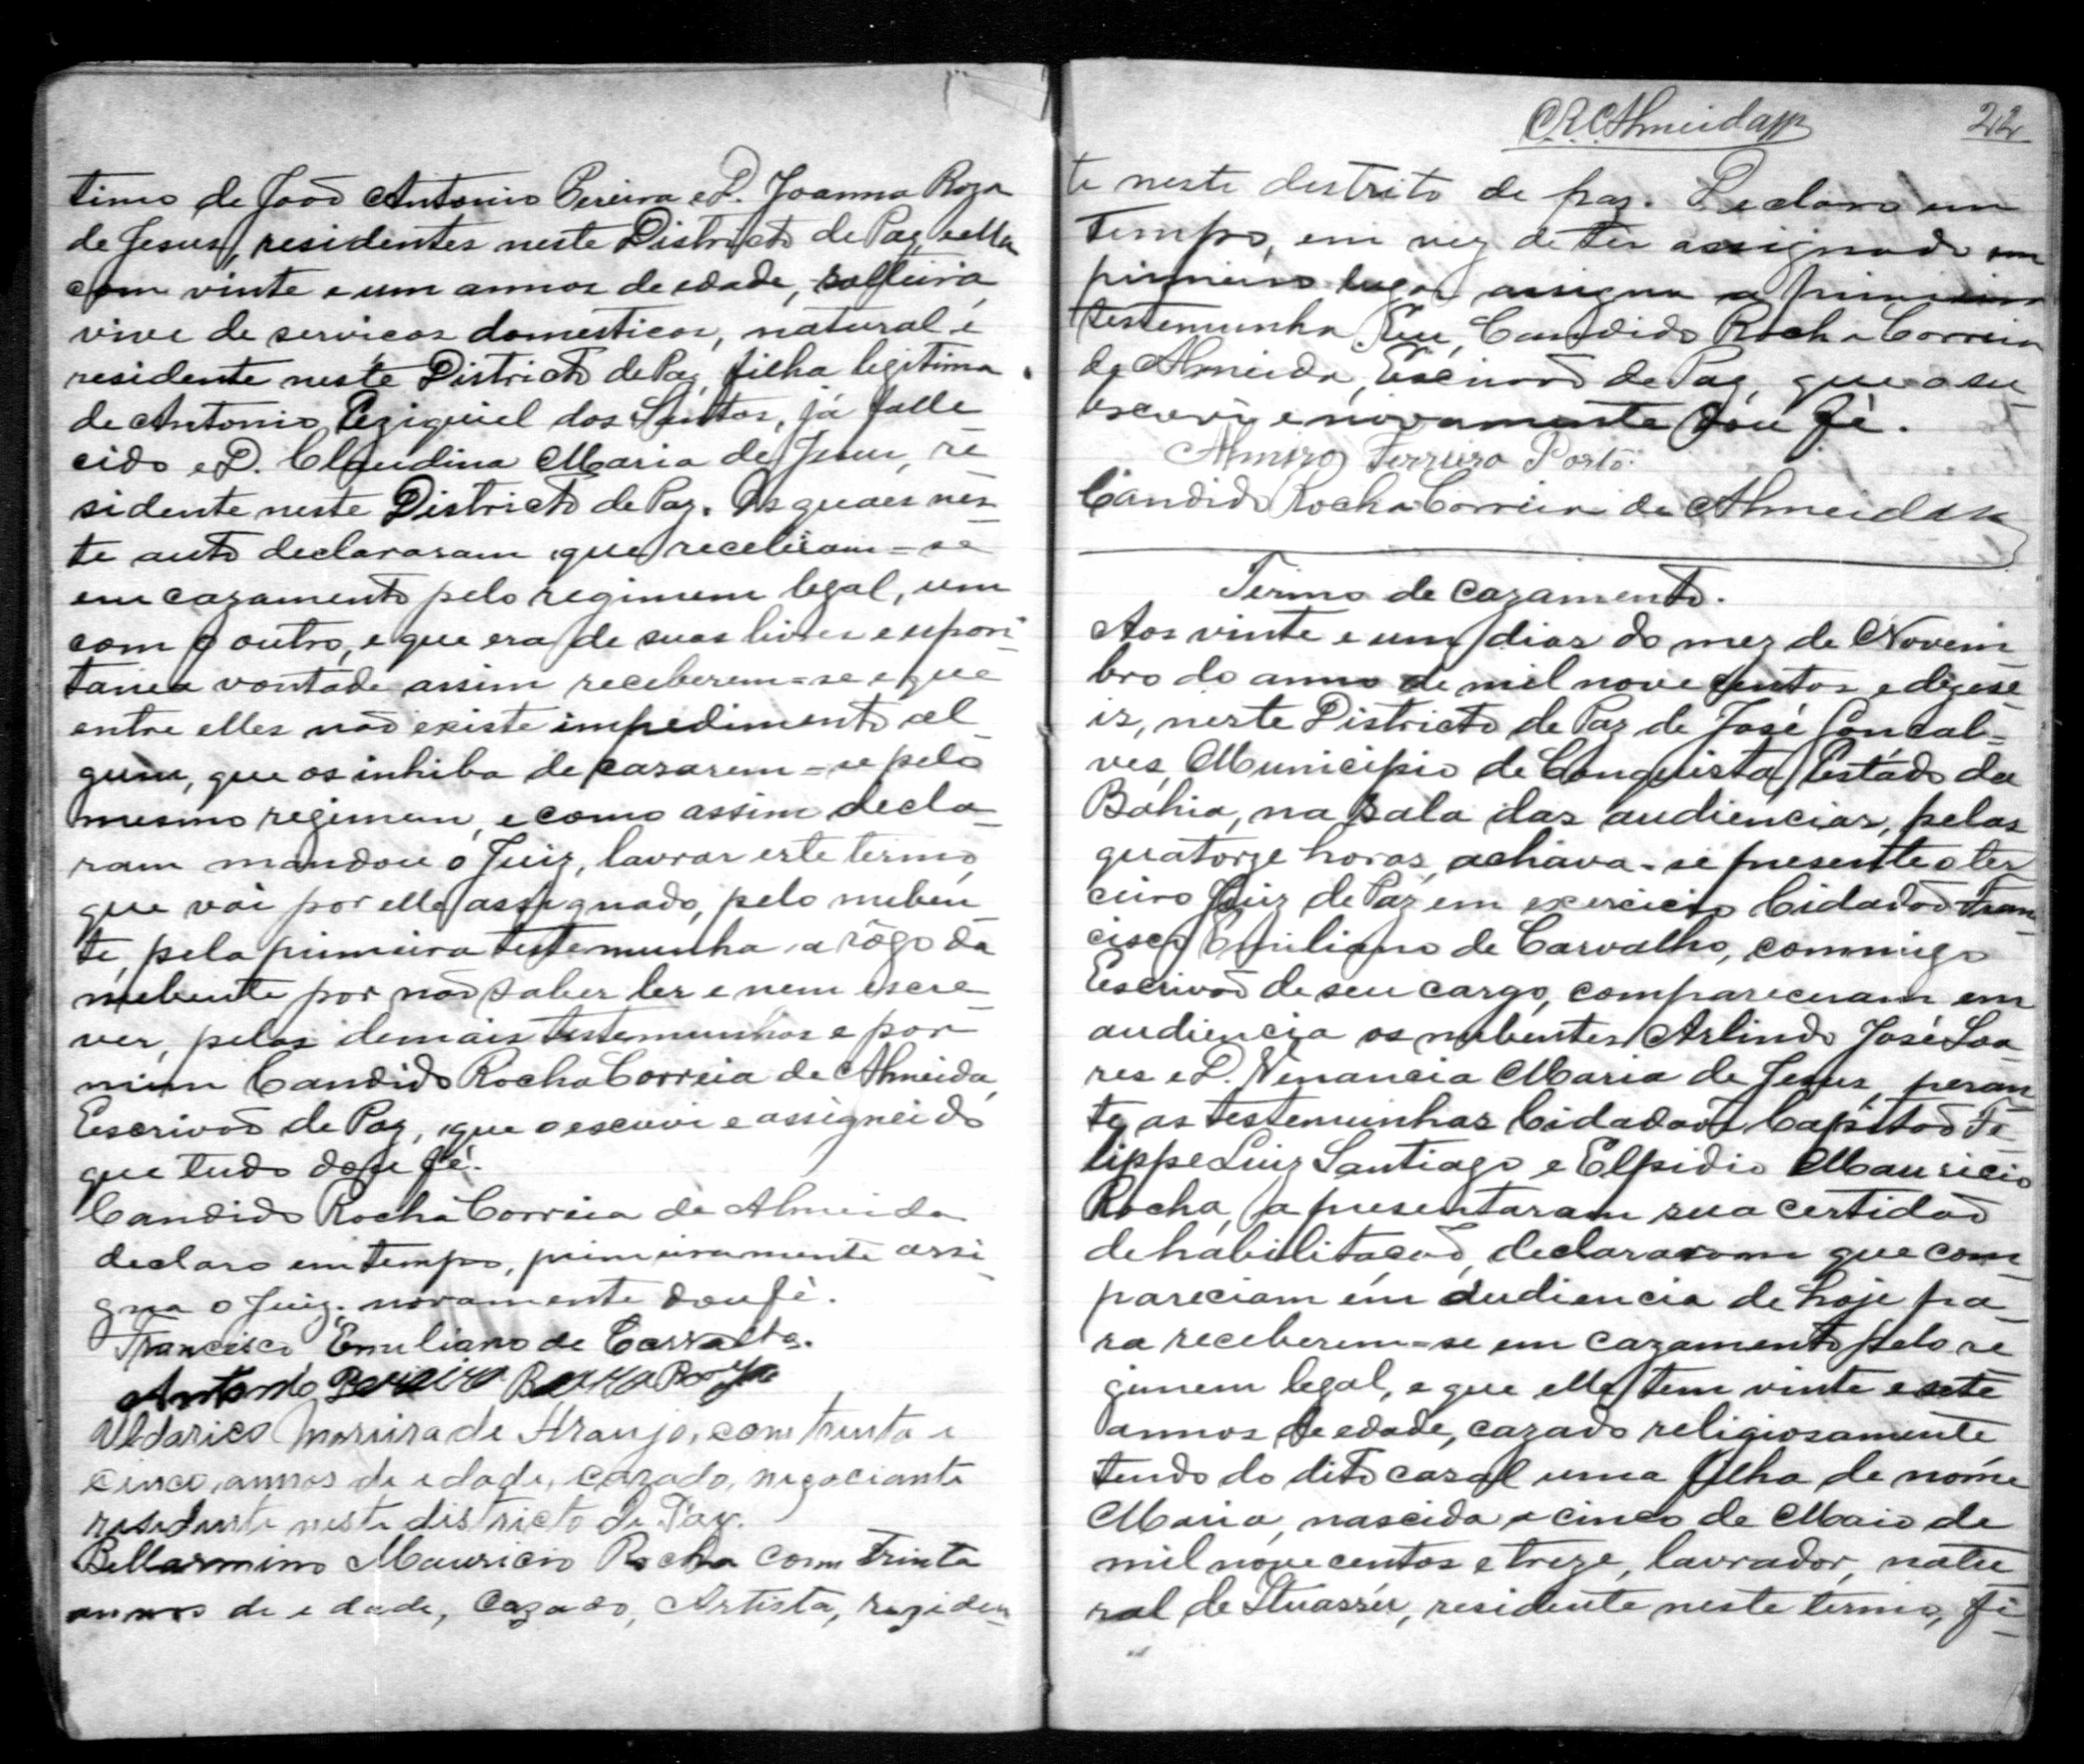 timo de João Antonio Pereira e D. Joanna Roza
de Jesus, residentes neste Districto de Paz, e ella
com vinte e um annos de edade, solteira,
vive de servicos domesticos, natural e
residente neste Districto de Paz, filha legitima
de Antonio Eziquiel dos Santos, já falle-
cido e D. Claudina Maria de Jesus, re-
sidente neste Districto de Paz. Os quaes nes-
te auto declararam que receberam=se
em cazamento pelo regimem legal, um
com o outro, e que era de suas livres e espon-
tanea vontade assim receberem=se e que
entre elles não existe impedimento al-
gum, que os inhiba de casarem=se pelo
mesmo regimem, e como assim decla-
ram mandou o Juiz, lavrar este termo,
que vai por elle assignado, pelo nuben-
te, pela primeira testemunha a rôgo da
nubente por não saber ler e nem escre-
ver, pelas demais testemunhas e por
mim Candido Rocha Correia de Almeida,
Escrivão de Paz, que o escrevi e assignei do
que tudo dou fé.
Candido Rocha Correia de Almeida
declaro em tempo, primeiramente assi-
gna o Juiz. novamente dou fé.
Francisco Emiliano de Carvalho.
Antonio Pereira
Uldarico Moreira de Araujo, com trinta e
cinco annos de edade, cazado, negociante
residente neste districto de Paz.
Bellarmino Mauricio Rocha com trinta
annos de edade, Cazado, Artista, reziden-
C R C Almeida
22
te neste destrito de paz. Declaro em
tempo, em vez de ter assignado em
primeiro lugar assigna a primeira
testemunha Eu, Candido Rocha Correia
de Almeida, Escrivão de Paz, que o su-
bscrevi e novamente dou fé.
Almiro Ferreira Porto.
Candido Rocha Correia de Almeida
Termo de cazamento.
Aos vinte e um dias do mez de Novem-
bro do anno de mil nove centos e dezese-
is, neste Districto de Paz de José Goncal=
ves, Municipio de Conquista, Estádo da
Báhia, na sala das audiencias, pelas
quatorze horas, achava-se presente o ter-
ceiro Juiz de Paz em exercicio Cidadão Fran-
cisco Emiliano de Carvalho, commigo
Escrivão de seu cargo, compareceram em
audiencia os nubentes Arlindo José Soa-
res e D. Venancia Maria de Jesus, peran-
te as testemunhas Cidadãos Capitão Fe-
lippe Luiz Santiago e Elpidio Mauricio
Rocha, apresentaram sua certidão
de habilitacão, declararam que com-
pareciam em audiencia de hoje pa-
ra receberem=se em cazamento pelo re-
gimem legal, e que elle tem vinte e sete
annos de edade, cazado religiosamente
tendo do dito casal uma filha de nome
Maria, nascida a cinco de Maio de
mil nove centos e treze, lavrador, natu-
ral de Ituassú, residente neste termo, fi-